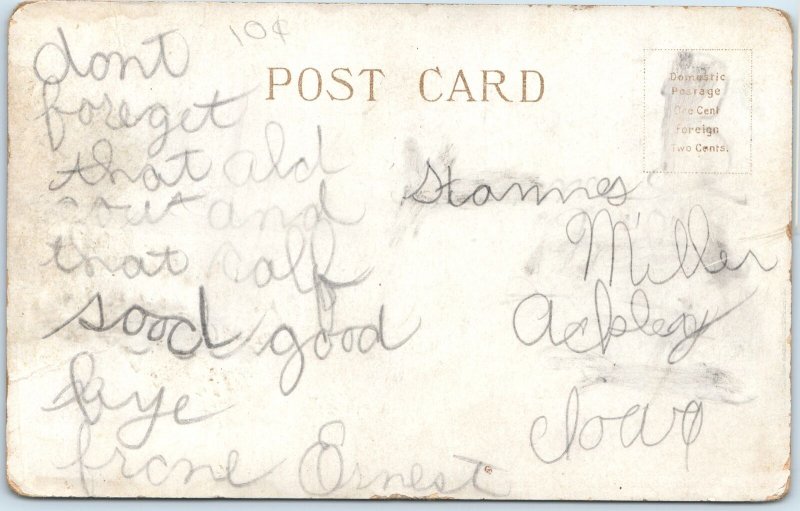 10¢
POST CARD
Domestic
Postage
One Cent
Foreign
Two Cents.
dont
foreget
that old
and
that calf
sood good
bye
frone Ernest
Stannes
Miller
Ackley
Ioway